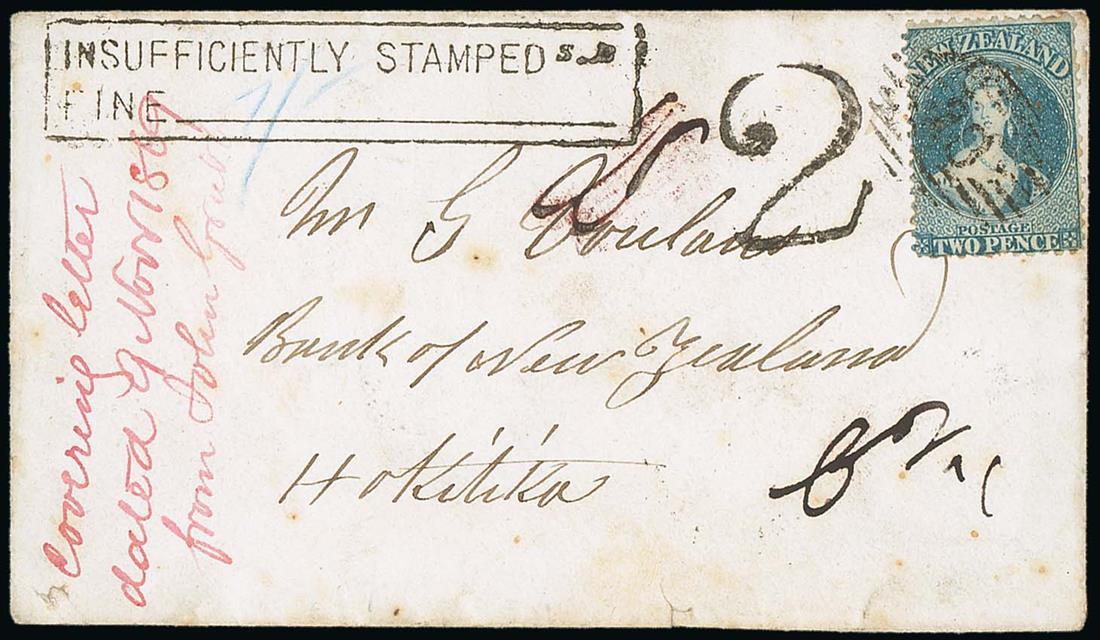 INSUFFICIENTLY STAMPED S D
FINE
1/-
2
NEW ZEALAND
POSTAGE
TWO PENCE
Mr G
Bank of New Zealand
Hokitika
Covering letter
dated 9 Novr 1869
from John